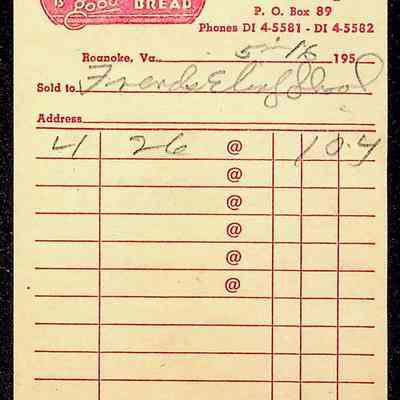 IS Good BREAD
P. O. Box 89
Phones DI 4-5581 - DI 4-5582
Roanoke, Va. 5-16 195
Sold to Friends Elem School
Address
4 26 @ 10.4
@
@
@
@
@